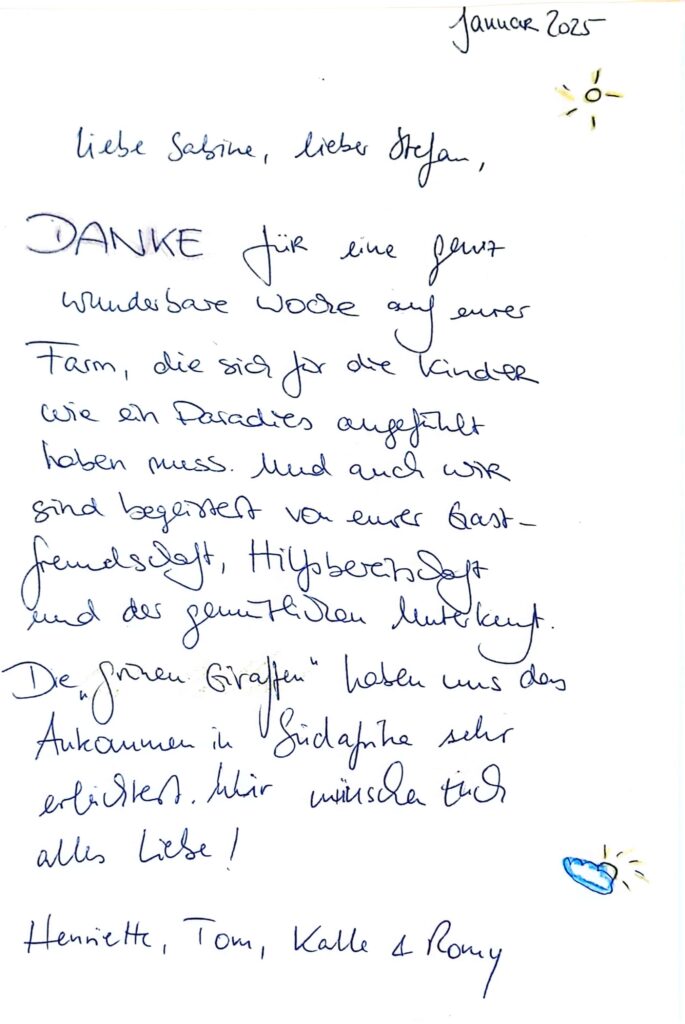 Januar 2025
Liebe Sabine, lieber Stefan,
DANKE für eine ganz
wunderbare Woche auf eurer
Farm, die sich für die Kinder
wie ein Paradies angefühlt
haben muss. Und auch wir
sind begeistert von eurer Gast-
freundschaft, Hilfsbereitschaft
und der gemütlichen Unterkunft.
Die „grünen Giraffen" haben uns das
Ankommen in Südafrika sehr
erleichtert. Wir wünschen Euch
alles Liebe!
Henriette, Tom, Kalle & Romy